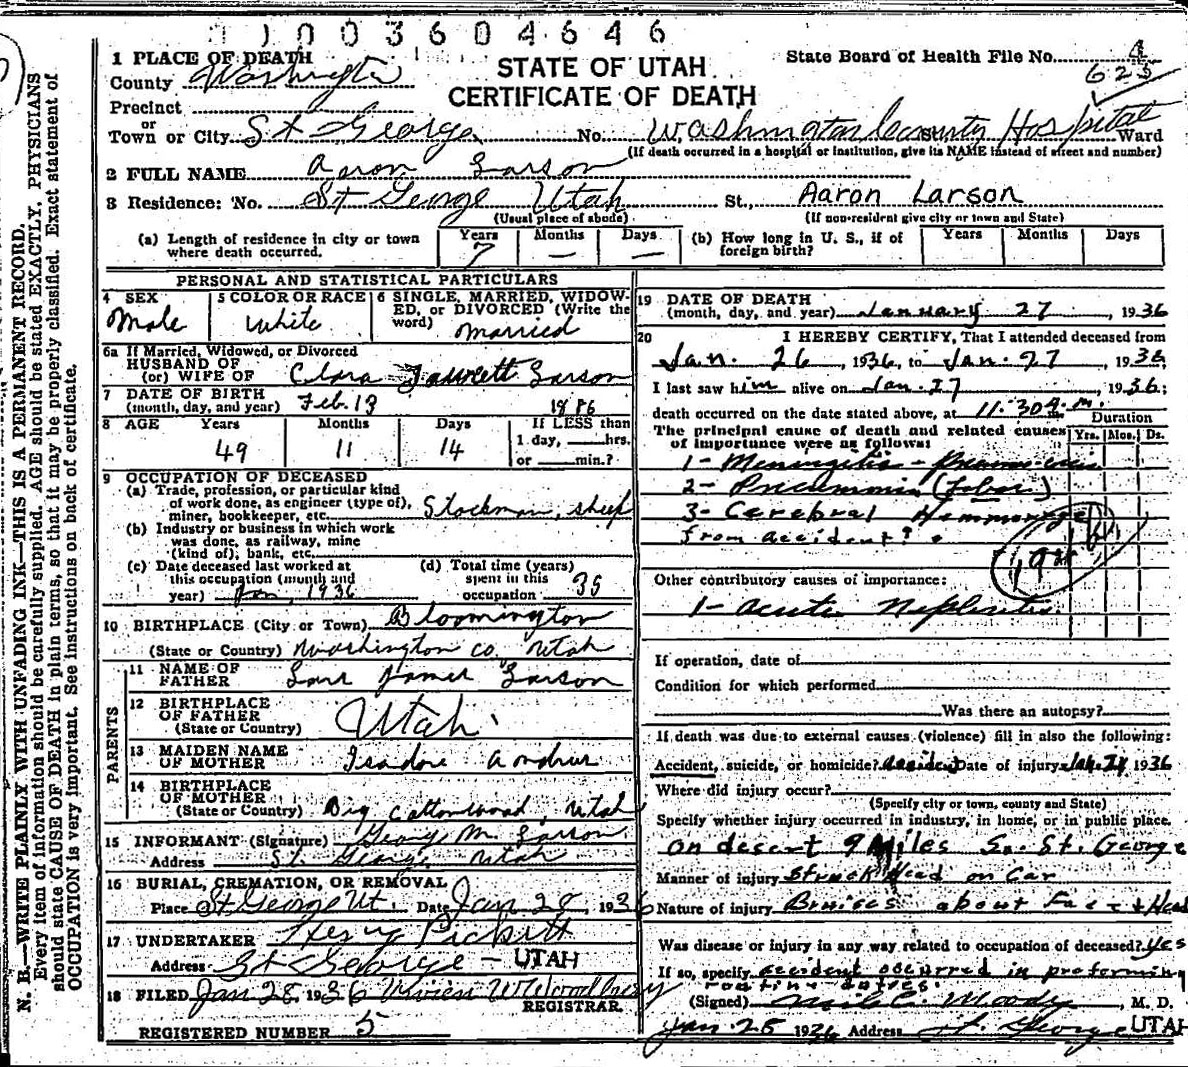 11003604646
1 PLACE OF DEATH
County Washington
STATE OF UTAH
CERTIFICATE OF DEATH
State Board of Health File No. 4
625
Precinct
or
Town or City St George No. Washington County Hospital St. Ward
(If death occurred in a hospital or institution, give its NAME instead of street and number)
2 FULL NAME Aaron Larson
3 Residence: No. St George Utah St., Aaron Larson
(Usual place of abode) (If non-resident give city or town and State)
(a) Length of residence in city or town where death occurred. Years 7 Months — Days —
(b) How long in U. S., if of foreign birth? Years Months Days
PERSONAL AND STATISTICAL PARTICULARS
4 SEX Male
5 COLOR OR RACE White
6 SINGLE, MARRIED, WIDOWED, or DIVORCED (Write the word) Married
6a If Married, Widowed, or Divorced
HUSBAND OF
(or) WIFE OF Clara Fawcett Larson
7 DATE OF BIRTH
(month, day, and year) Feb. 13 1886
8 AGE Years 49 Months 11 Days 14
If LESS than
1 day, hrs.
or min.?
9 OCCUPATION OF DECEASED
(a) Trade, profession, or particular kind
of work done, as engineer (type of),
miner, bookkeeper, etc. Stockman, sheep
(b) Industry or business in which work
was done, as railway, mine
(kind of), bank, etc.
(c) Date deceased last worked at
this occupation (month and
year) Jan, 1936
(d) Total time (years)
spent in this
occupation 35
10 BIRTHPLACE (City or Town) Bloomington
(State or Country) Washington Co. Utah
PARENTS
11 NAME OF
FATHER Lars James Larson
12 BIRTHPLACE
OF FATHER
(State or Country) Utah
13 MAIDEN NAME
OF MOTHER Isadore Andrus
14 BIRTHPLACE
OF MOTHER
(State or Country) Big Cottonwood, Utah
15 INFORMANT (Signature) George M. Larson
Address St. George, Utah
16 BURIAL, CREMATION, OR REMOVAL
Place St George Ut. Date Jan 28, 1936
17 UNDERTAKER Pickett
Address St George - UTAH
18 FILED Jan 28, 1936 Vivien W Woodbury
REGISTRAR.
REGISTERED NUMBER 5
19 DATE OF DEATH
(month, day, and year) January 27, 1936
20 I HEREBY CERTIFY, That I attended deceased from
Jan. 26, 1936, to Jan. 27 1936
I last saw him alive on Jan. 27 1936;
death occurred on the date stated above, at 11:30 a.m.
Duration
The principal cause of death and related causes
of importance were as follows:
Yrs. Mos. Ds.
1- Meningitis -
2- Pneumonia (Lobar)
3- Cerebral Hemmorage
from accident?
Other contributory causes of importance:
1- Acute Nephritis
If operation, date of
Condition for which performed
Was there an autopsy?
If death was due to external causes (violence) fill in also the following:
Accident, suicide, or homicide? Accident Date of injury Jan. 1936
Where did injury occur?
(Specify city or town, county and State)
Specify whether injury occurred in industry, in home, or in public place.
On desert 9 Miles So. St. George
Manner of injury Struck Head on Car
Nature of injury Bruises about Face + Head
Was disease or injury in any way related to occupation of deceased? Yes
If so, specify accident occurred in preforming
routine duties.
(Signed) Moody, M. D.
Jan. 28 1936 Address St. George UTAH
N. B.—WRITE PLAINLY WITH UNFADING INK—THIS IS A PERMANENT RECORD.
Every item of information should be carefully supplied. AGE should be stated EXACTLY. PHYSICIANS
should state CAUSE OF DEATH in plain terms, so that it may be properly classified. Exact statement of
OCCUPATION is very important. See instructions on back of certificate.